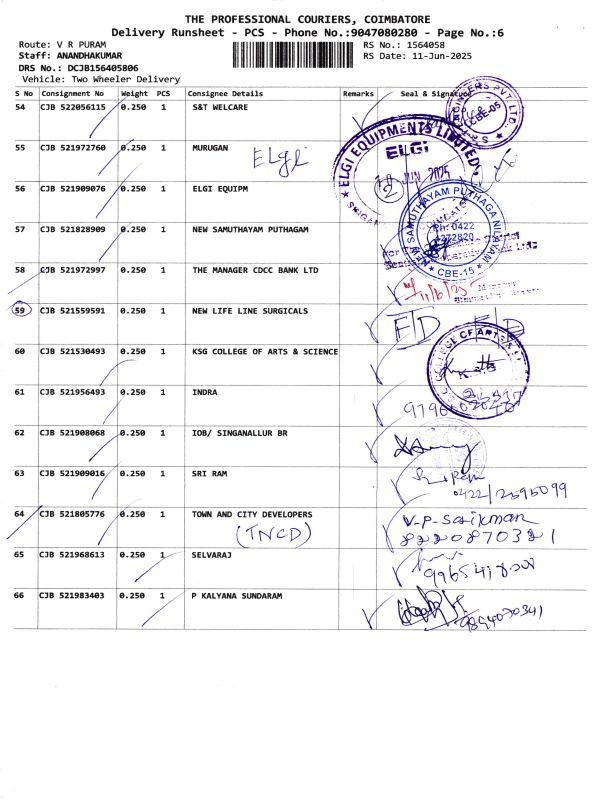 THE PROFESSIONAL COURIERS, COIMBATORE
Delivery Runsheet - PCS - Phone No.:9047080280 - Page No.:6
Route: V R PURAM
RS No.: 1564058
Staff: ANANDHAKUMAR
RS Date: 11-Jun-2025
DRS No.: DCJB156405806
Vehicle: Two Wheeler Delivery
S No Consignment No Weight PCS Consignee Details Remarks Seal & Signature
54 CJB 522056115 0.250 1 S&T WELCARE
CBE-05
55 CJB 521972760 0.250 1 MURUGAN
Elgi
ELGI EQUIPMENTS LIMITED
ELGi
JUN 2025
56 CJB 521909076 0.250 1 ELGI EQUIPM
57 CJB 521828909 0.250 1 NEW SAMUTHAYAM PUTHAGAM
NEW SAMUTHAYAM PUTHAGA NILAYAM
Ph: 0422
CBE-15
58 CJB 521972997 0.250 1 THE MANAGER CDCC BANK LTD
11/6/25
59 CJB 521559591 0.250 1 NEW LIFE LINE SURGICALS
E/D E/D
60 CJB 521530493 0.250 1 KSG COLLEGE OF ARTS & SCIENCE
COLLEGE OF ARTS
61 CJB 521956493 0.250 1 INDRA
62 CJB 521908068 0.250 1 IOB/ SINGANALLUR BR
63 CJB 521909016 0.250 1 SRI RAM
0422/2595099
64 CJB 521805776 0.250 1 TOWN AND CITY DEVELOPERS
(TNCD)
V-P-Saikman
8220870321
65 CJB 521968613 0.250 1 SELVARAJ
66 CJB 521983403 0.250 1 P KALYANA SUNDARAM
9894070341